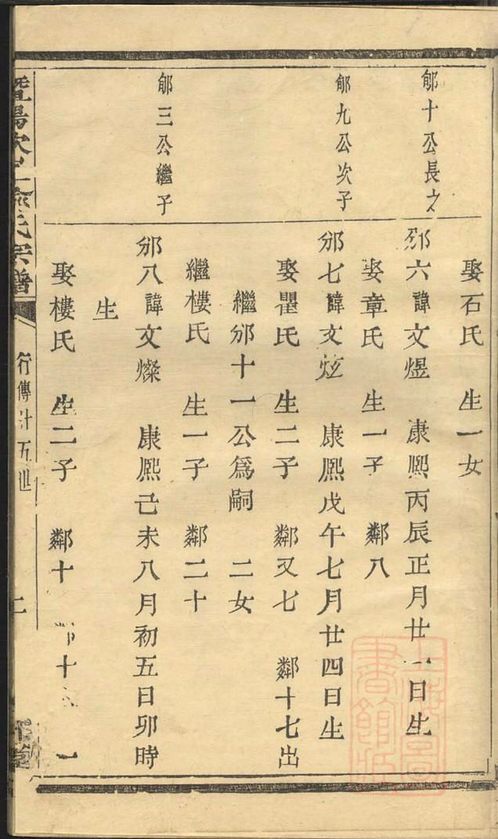 娶石氏 生一女
郇十公長之
邠六諱文煜 康熙丙辰正月廿一日生
娶章氏 生一子 鄰八
郇九公次子
邠七諱文炫 康熙戊午七月廿四日生
娶瞿氏 生二子 鄰又七 鄰十七出
繼邠十一公爲嗣 二女
繼樓氏 生一子 鄰二十
郇三公繼子
邠八諱文燦 康熙己未八月初五日卯時
生
娶樓氏 生二子 鄰十 鄰十 一
暨陽次 俞氏宗譜
行傳廿五世